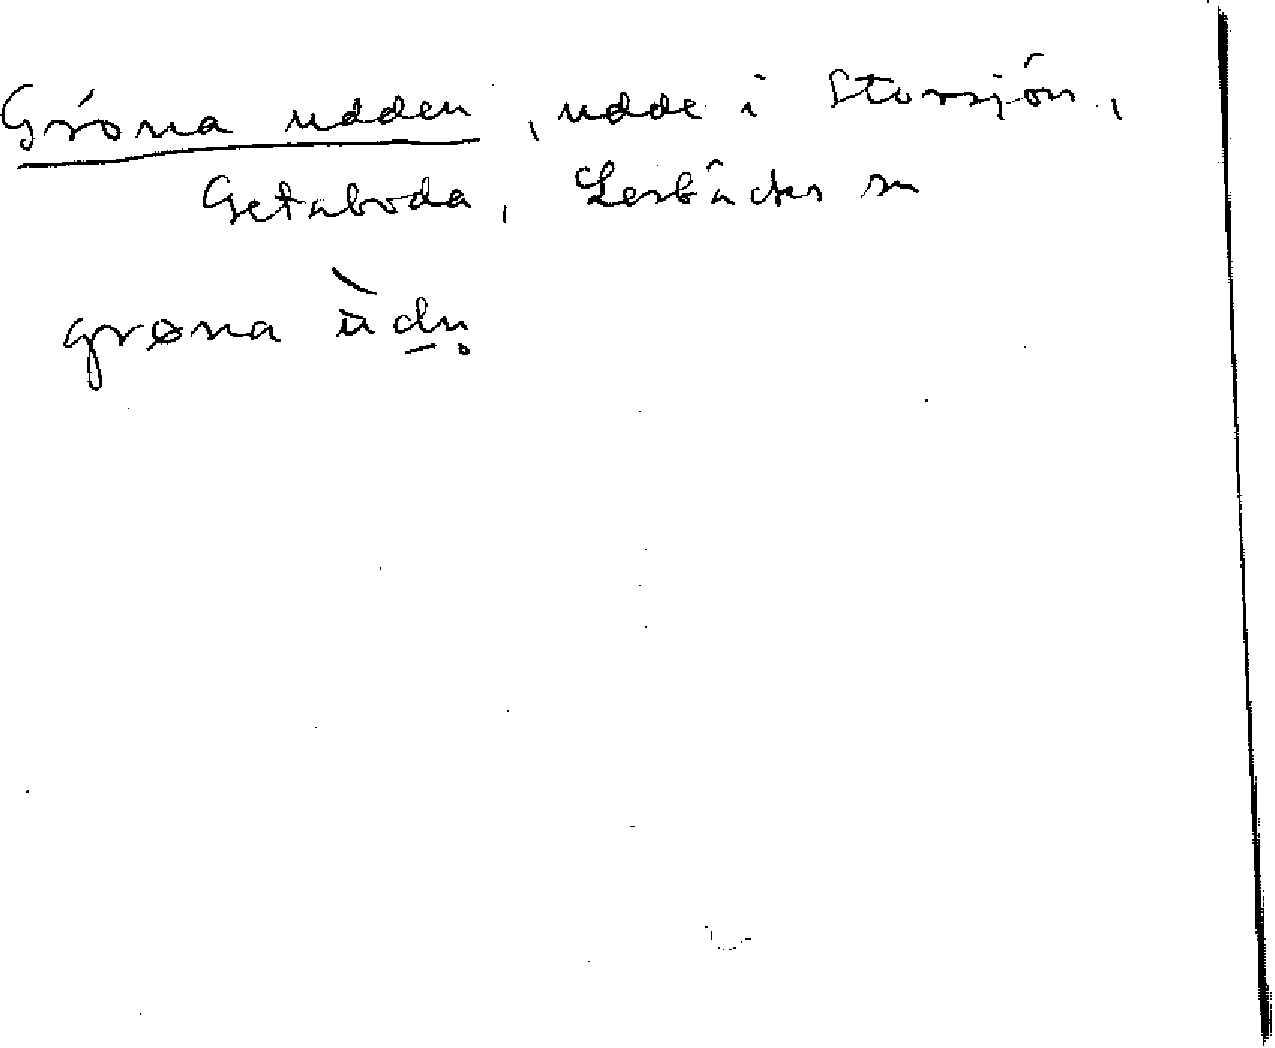 Gröna udden, udde i Storsjön,
Getaboda, Lerbäcks sn
grøna ùdn̥